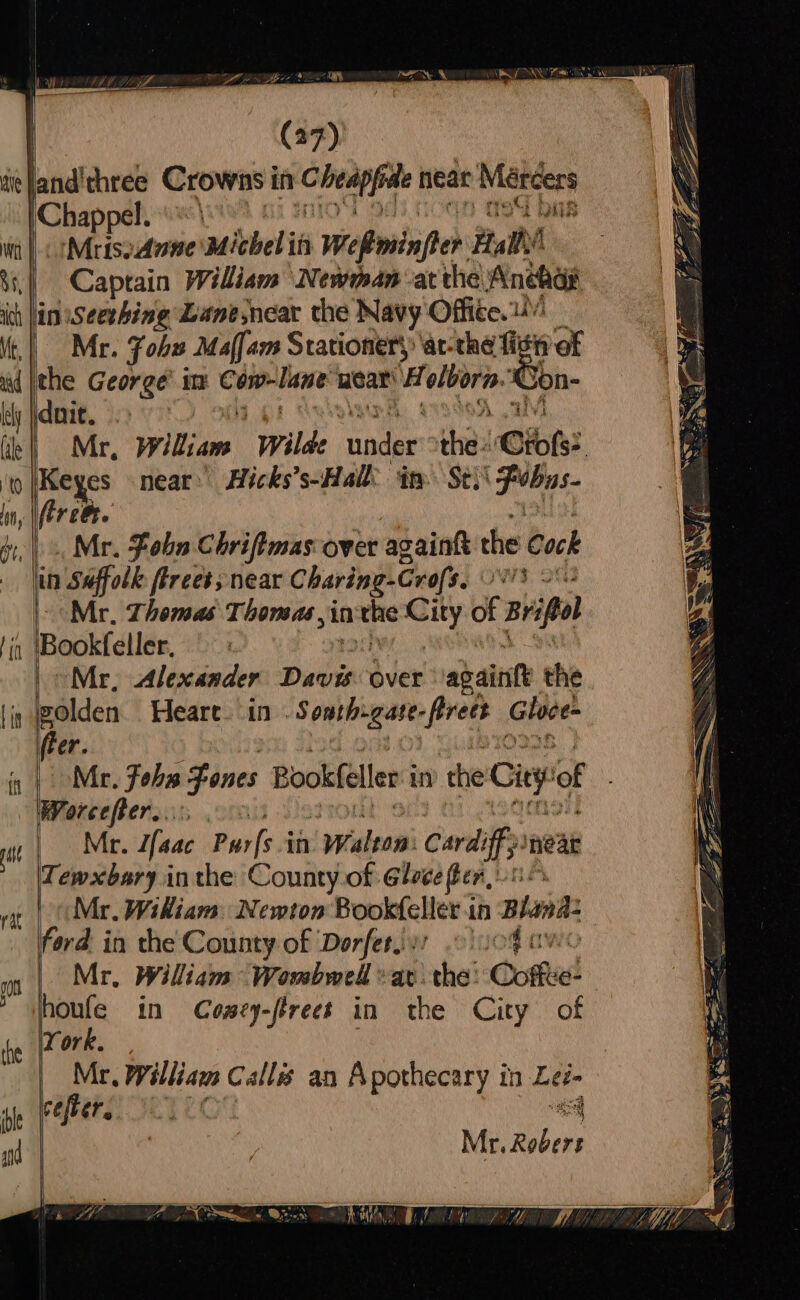 (27)
and three Crowns in Cheapſide near Mercers
Chappel.
Mris. Anne Michel in Weſtminſter Hall
Captain William Newman at the Anchor
in Seething Lane, near the Navy Office.
Mr. John Maſſam Stationer, at the ſign of
the George in Cow-lane near Holborn Con-
duit.
Mr. William Wilde under the Croſs
Keyes near Hicks's-Hall in St. Johns-
ſtreet.
Mr. John Chriſtmas over againſt the Cock
in Suffolk ſtreet, near Charing-Croſs.
Mr. Thomas Thomas, in the City of Briſtol
Bookſeller.
Mr. Alexander Davis over againſt the
golden Heart in South-gate-ſtreet Gloce-
ſter.
Mr. John Jones Bookſeller in the City of
Worceſter.
Mr. Iſaac Purſs in Walton Cardiff, near
Tewxbury in the County of Gloceſter,
Mr. William Newton Bookſeller in Bland-
ford in the County of Dorſet.
Mr. William Wombwell at the Coffee-
houſe in Coney-ſtreet in the City of
York.
Mr. William Callis an Apothecary in Lei-
ceſter.
Mr. Robers